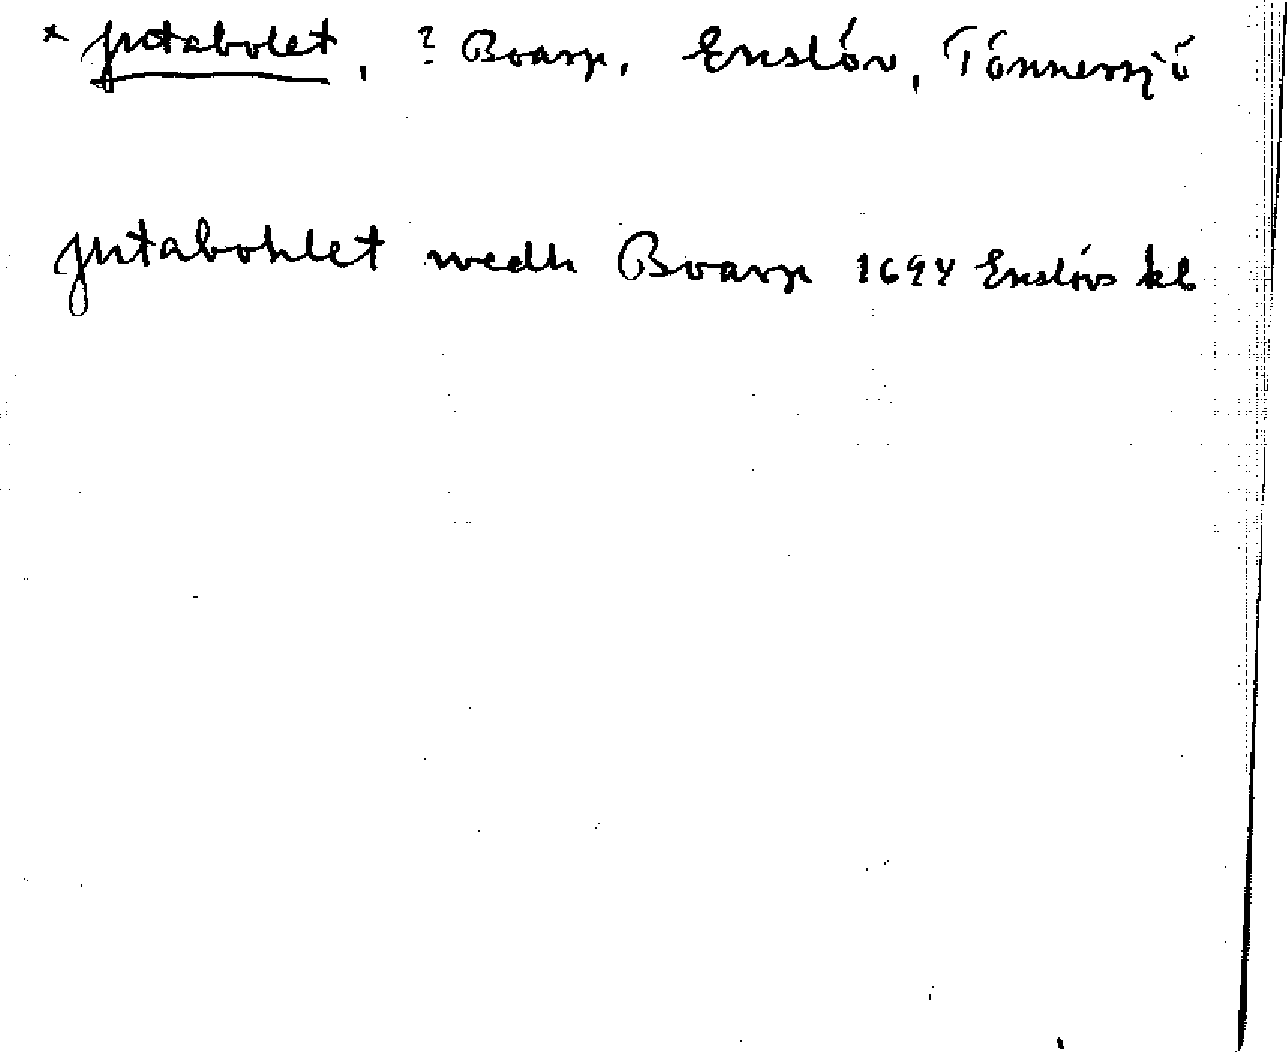 * Jutabolet, ? Boarp, Enslöv, Tönnersjö
Jutabohlet wedh Boarp 1694 Enslövs kb